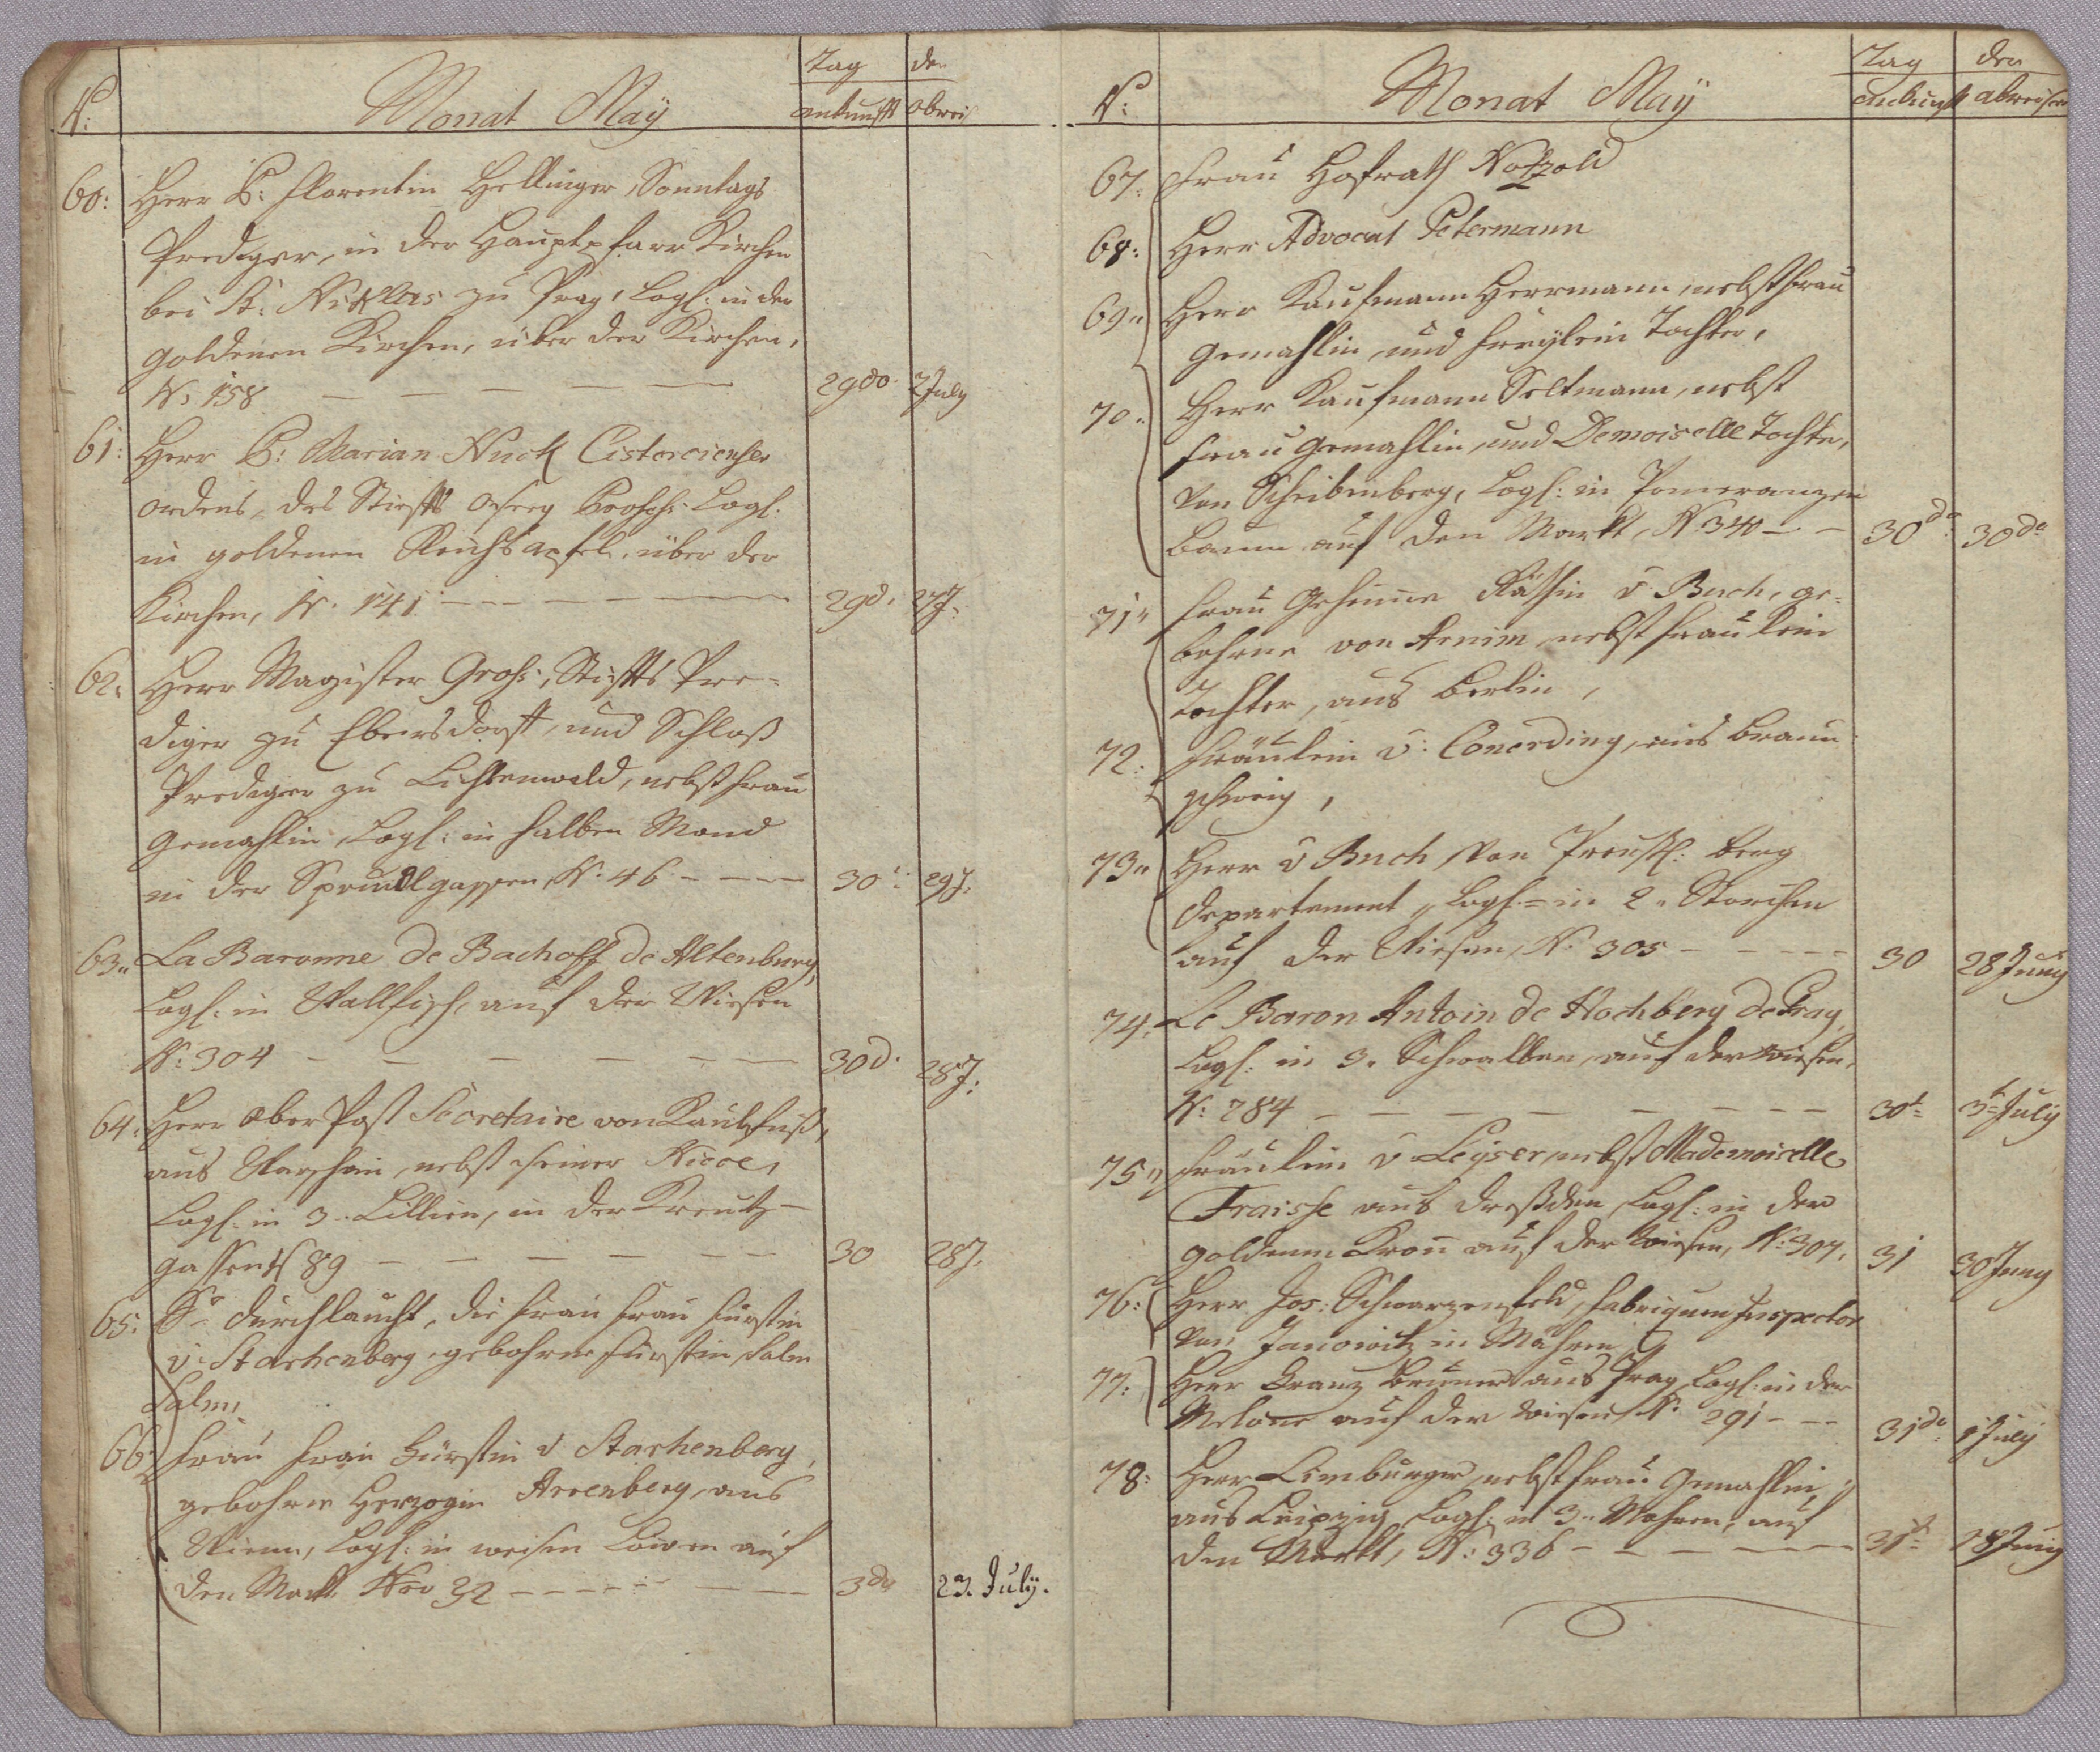 N: Monat Maÿ Tag den
ankunfft abreis
60: Herr P: Florentin Hellinger Sonntags
Prediger, in der Hauptpfarr Kirchen
bei St: Niklas zu Prag, Logl: in der
goldenen Kirchen, über der Kirchen,
N: 158 — — — — — 29do. 2 July
61: Herr P: Marian Nuck Cistercienser
ordens, des Stiffts Osseg Profess: Logl:
in goldenen Reichsapfel, über der
Kirchen, N. 141 — — — — 29d. 27J:
62: Herr Magister Gross, Stiffts Pre-
diger zu Ebersdorff, und Schloß
Prediger zu Lichtenwald, nebst Frau
Gemahlin, Logl: in halben Mond
in der Sprudlgassen, N: 46 — — — 30 29J:
63" La Baronne de Bachoff de Altenburg,
Logl: in Wallfisch, auf der Wiesen
N: 304 — — — — — — 30d. 28J:
64: Herr Ober Post Secretaire von Kaulfuß,
aus Warschau, nebst seiner Niece,
Logl: in 3. Lillien, in der Kreutz-
gassen N 89 — — — — — — 30 28J.
65: Sr Durchlaucht, die Frau Frau Fürstin
v: Starhenberg, gebohrne Fürstin Salm
Salm,
66: Frau Frau Fürstin v Starhenberg,
gebohrne Herzogin Arrenberg, aus
Wienn, Logl: in weisen Löwen auf
den Markt Nro 32 — — — — — 3do 23. Julÿ.
N: Monat Maÿ Tag den
ankunft abreisen
67: Frau Hofrath Notzold
68: Herr Advocat Petermann
69" Herr Kaufmann Herrmann, nebst Frau
Gemahlin, und Freÿlein Tochter,
70" Herr Kaufmann Seltmann, nebst
Frau Gemahlin, und Demoiselle Tochter,
von Scheibenberg, Logl: in Pomeranzen
Baum auf den Markt, N. 340 — — 30do 30do
71" Frau Geheime Räthin v Buch, ge-
bohrne von Arnim, nebst Fraulein
Tochter, aus Berlin,
72: Fräulein v: Conerding, aus Braun-
schweig,
73" Herr v Buch, von Preußl: Berg
departement, Logl: in 2. Storchen
auf der Wiesen, N: 305 — — — — 30 28 Juny
74: Le Baron Antoin de Hochberg de Prag,
Logl: in 3. Schwalben, auf der Wiesen,
N: 284 — — — — — — — 30t 3t July
75" Fräulein v Leyser, nebst Mademoiselle
Fraisse aus Dreßden, Logl: in der
goldenen Kron auf der Wiesen, N: 307. 31 30 Juny
76: Herr Jos: Schwarzenfeld, Fabriquen Inspector
von Janowitz in Mähren
77: Herr Franz Brunn aus Prag, Logl: in der
Melone auf der Wiesen, N: 291 — — 31do July
78: Herr Limburger, nebst Frau Gemahlin,
aus Leipzig, Logl: in 3. Mohren, auf
den Markt, N: 336 — — — — — 31t 28 Juny